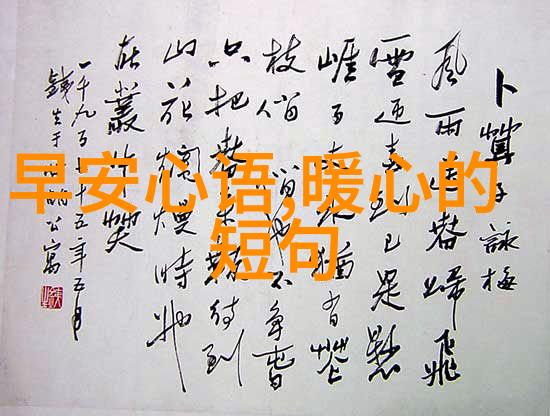 早安心语,暖心的
短句
卜算子詠梅
風雨送春歸飛
雪迎春到已是懸
崖百丈冰猶有花
枝俏俏也不爭春
只把春來報待到
山花爛熳時她
在叢中笑
一千九百七十五年五月
公寓